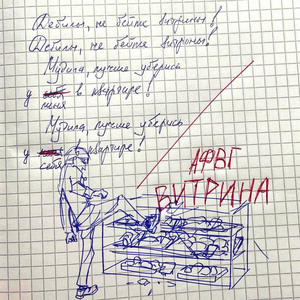 Дебилы, не бейте витрины!
Дебилы, не бейте витрины!
Мудила, лучше уберись
у меня в квартире!
Мудила, лучше уберись
у себя в квартире!
АФВГ
ВИТРИНА